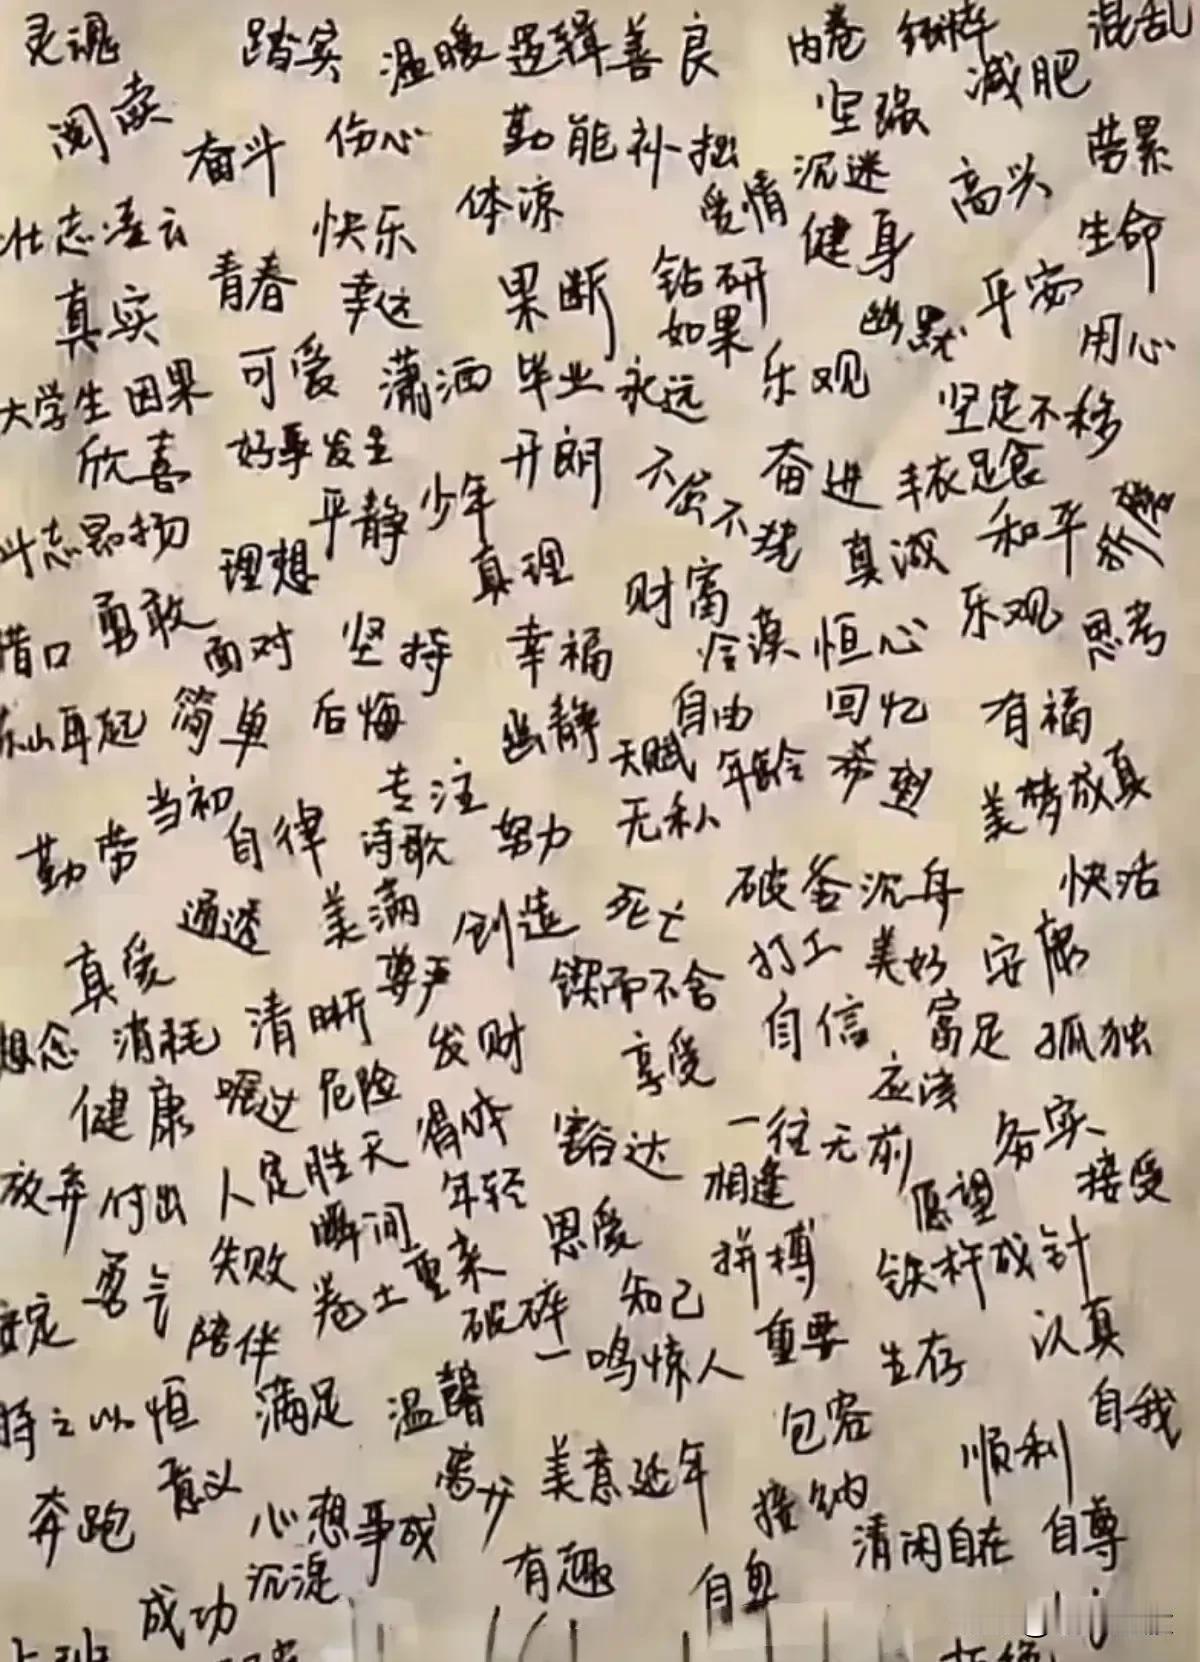 灵魂 踏实 温暖 逻辑 善良 内卷 纯粹 混乱
阅读 奋斗 伤心 勤能补拙 坚强 减肥
壮志凌云 快乐 体谅 爱情 沉迷 高兴 劳累
真实 青春 幸运 果断 钻研 健身 生命
如果 幽默 平安 用心
大学生 因果 可爱 潇洒 毕业 永远 乐观 坚定不移
欣喜 好事发生 开朗 不屈不挠 奋进 丰衣足食
斗志昂扬 理想 平静 少年 真理 真诚 和平
借口 勇敢 面对 坚持 幸福 财富 冷漠 恒心 乐观 思考
东山再起 简单 后悔 幽静 自由 回忆 有福
当初 专注 天赋 年龄 美梦成真
勤劳 自律 诗歌 努力 无私
通透 美满 创造 死亡 破釜沉舟 快活
真爱 尊严 锲而不舍 打工 美好 安康
想念 消耗 清晰 发财 享受 自信 富足 孤独
健康 危险 得体 豁达 一往无前 应该 务实
放弃 付出 人定胜天 年轻 相逢 愿望 接受
勇气 失败 瞬间 卷土重来 恩爱 拼搏 铁杵成针
安定 陪伴 破碎 知己 重要 生存 认真
一鸣惊人
持之以恒 满足 温馨 包容 自我
奔跑 意义 心想事成 离开 美意延年 接纳 顺利
沉淀 有趣 自卑 清闲自在 自尊
成功
上班 拒绝